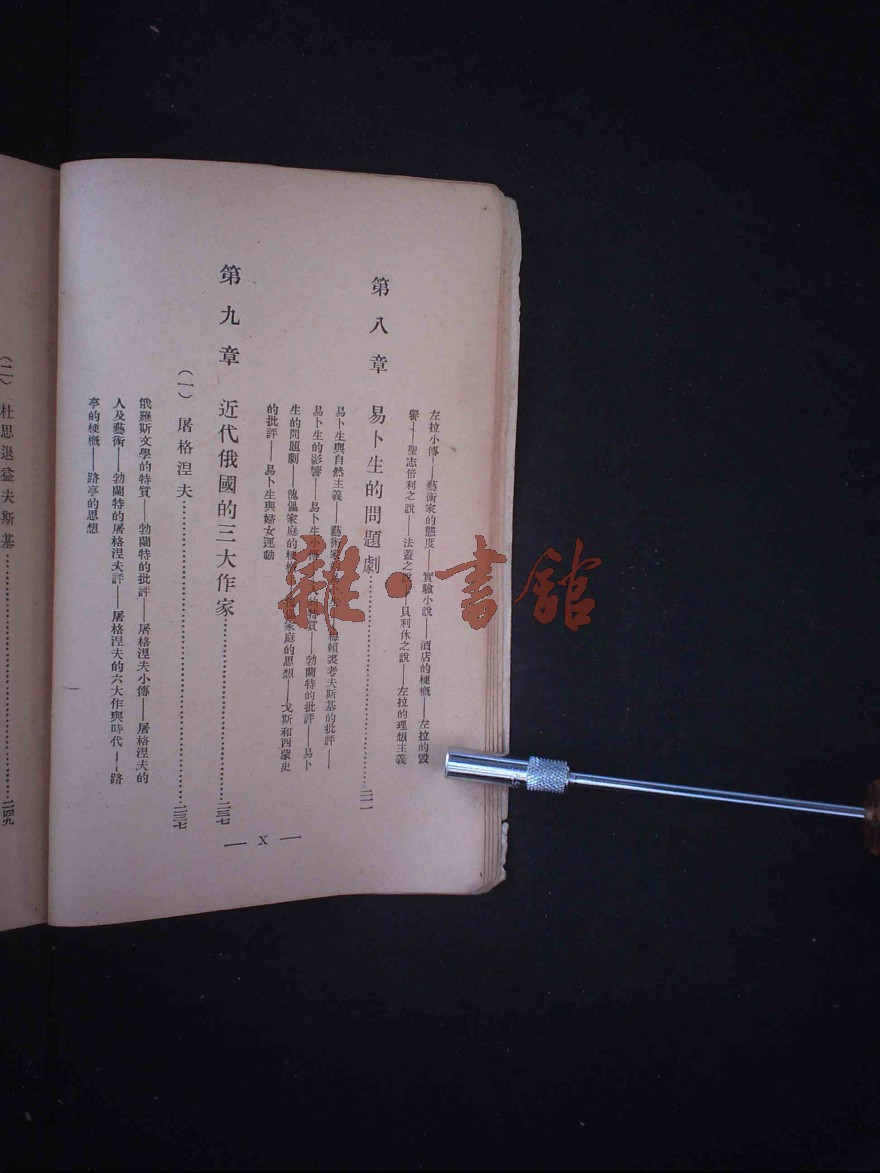 左拉小傳——藝術家的態度——實驗小說——酒店的梗概——左拉的毀
譽——聖志倍利之說——法蓋之說——貝利休之說——左拉的理想主義
第八章　易卜生的問題劇……二一一
易卜生與自然主義——藝術家
梅賴裘考夫斯基的批評——
易卜生的影響——易卜生小傳
的特質——勃蘭特的批評——易卜
生的問題劇——傀儡家庭的梗概
家庭的思想——戈斯和西蒙史
的批評——易卜生與婦女運動
第九章　近代俄國的三大作家……二三七
（一）屠格涅夫……二三七
俄羅斯文學的特質——勃蘭特的批評——屠格涅夫小傳——屠格涅夫的
人及藝術——勃蘭特的屠格涅夫評——屠格涅夫的六大作與時代——路
亭的梗概——路亭的思想
— X —
（二）杜思退益夫斯基……二四九
雜·書館